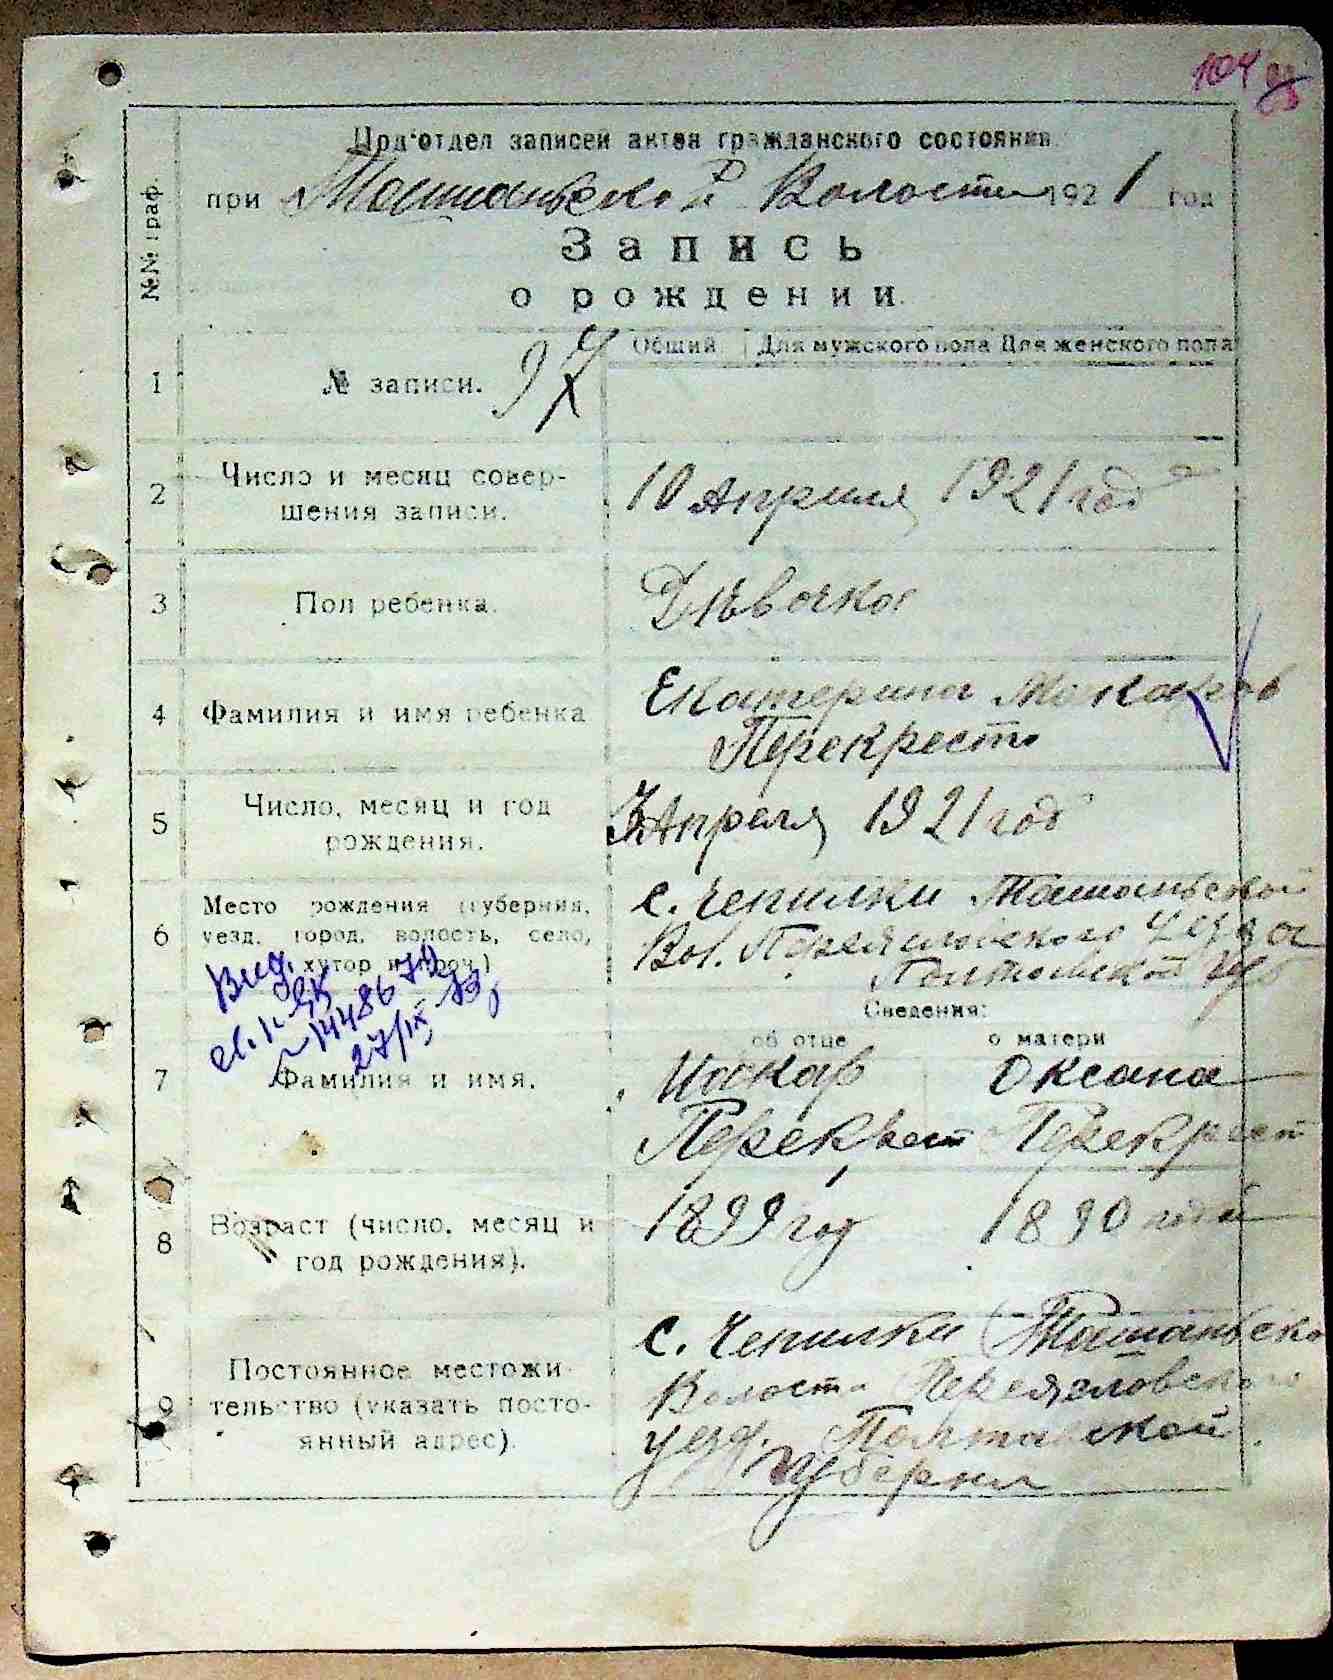 104
Под'отдел записей актов гражданского состояния
при Ташаньской Волости 1921 год
№№ граф.
Запись
о рождении.
Общий Для мужского пола Для женского пола
1 № записи. 97
2 Число и месяц совершения записи. 10 Апреля 1921 год
3 Пол ребенка. Дѣвочка
4 Фамилия и имя ребенка Екатерина Макаров
Перекрест
5 Число, месяц и год
рождения. Апреля 1921 год
6 Место рождения (губерния,
уезд, город, волость, село,
хутор и проч.)
с. Чепилки Ташаньской
Вол. Переяславского уезда
Полтавской губ
Вид.
14486
27/IX 73
Сведения:
об отце о матери
7 Фамилия и имя. Макар Оксана
Перекрест Перекрест
8 Возраст (число, месяц и
год рождения). 1899 год 1890
9 Постоянное местожи-
тельство (указать посто-
янный адрес).
с. Чепилки Ташаньско
Волости Переяславского
уезд. Полтавской
Губерни